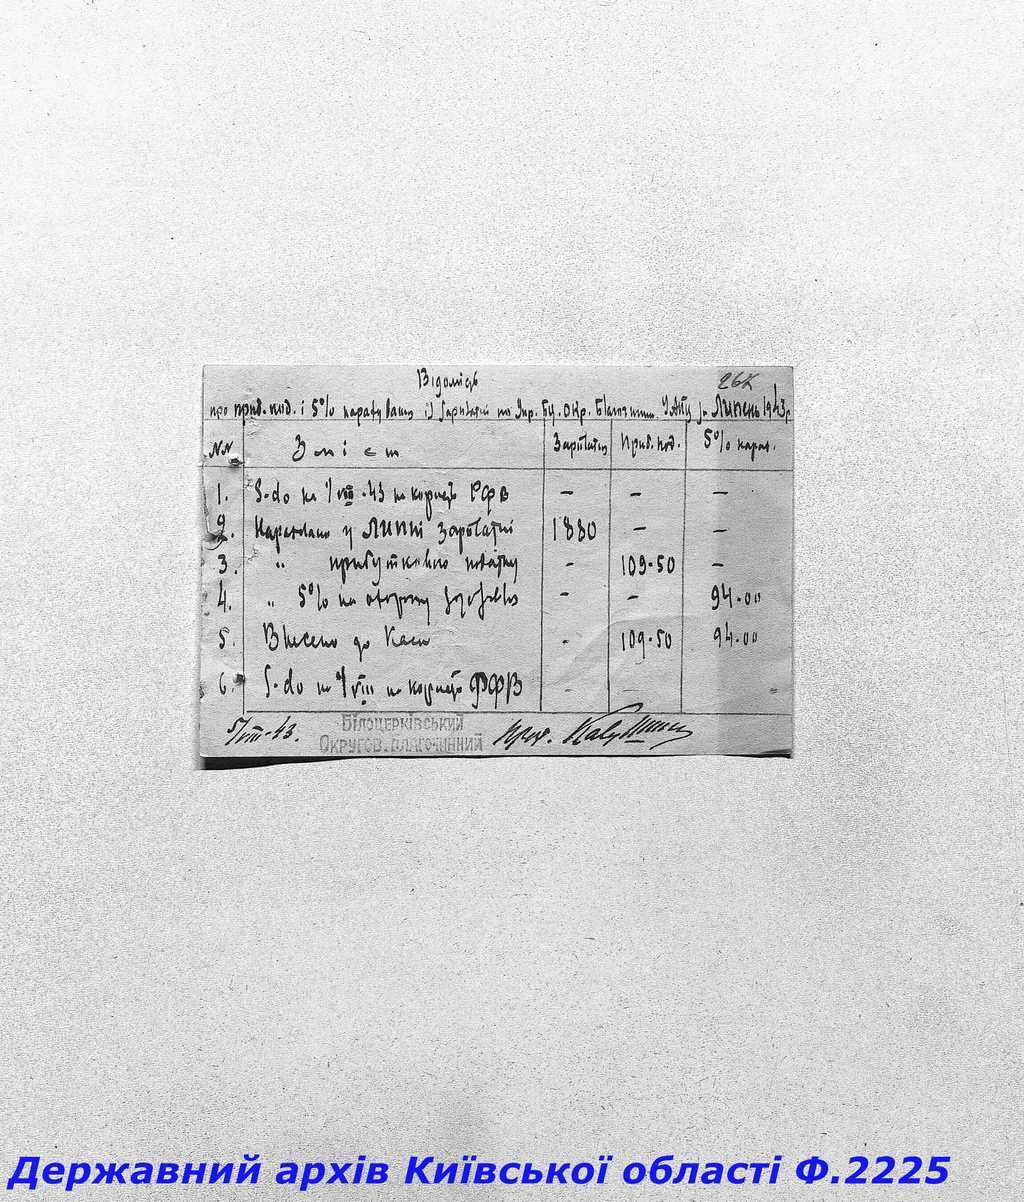 Відомість
267
про приб. под. і 5% нарахування із зарплатні по Упр. Бц. Окр. Благочинн. УАПЦ за Липень 1943 р.
NN Зміст Зарплатня Приб. под. 5% нарах.
1. S-do на 1/VIII-43 на користь РФВ — — —
2. Нараховано у Липні зарплатні 1880 — —
3. " прибутково податку - 109-50 —
4. " 5% на - — 94-00
5. Внесено до Каси - 109-50 94-00
6. S-do на 1/VIII на користь РФВ - — "
5/VIII-43. Білоцерківський
Округов. благочинний прот.
Державний архів Київської області Ф.2225